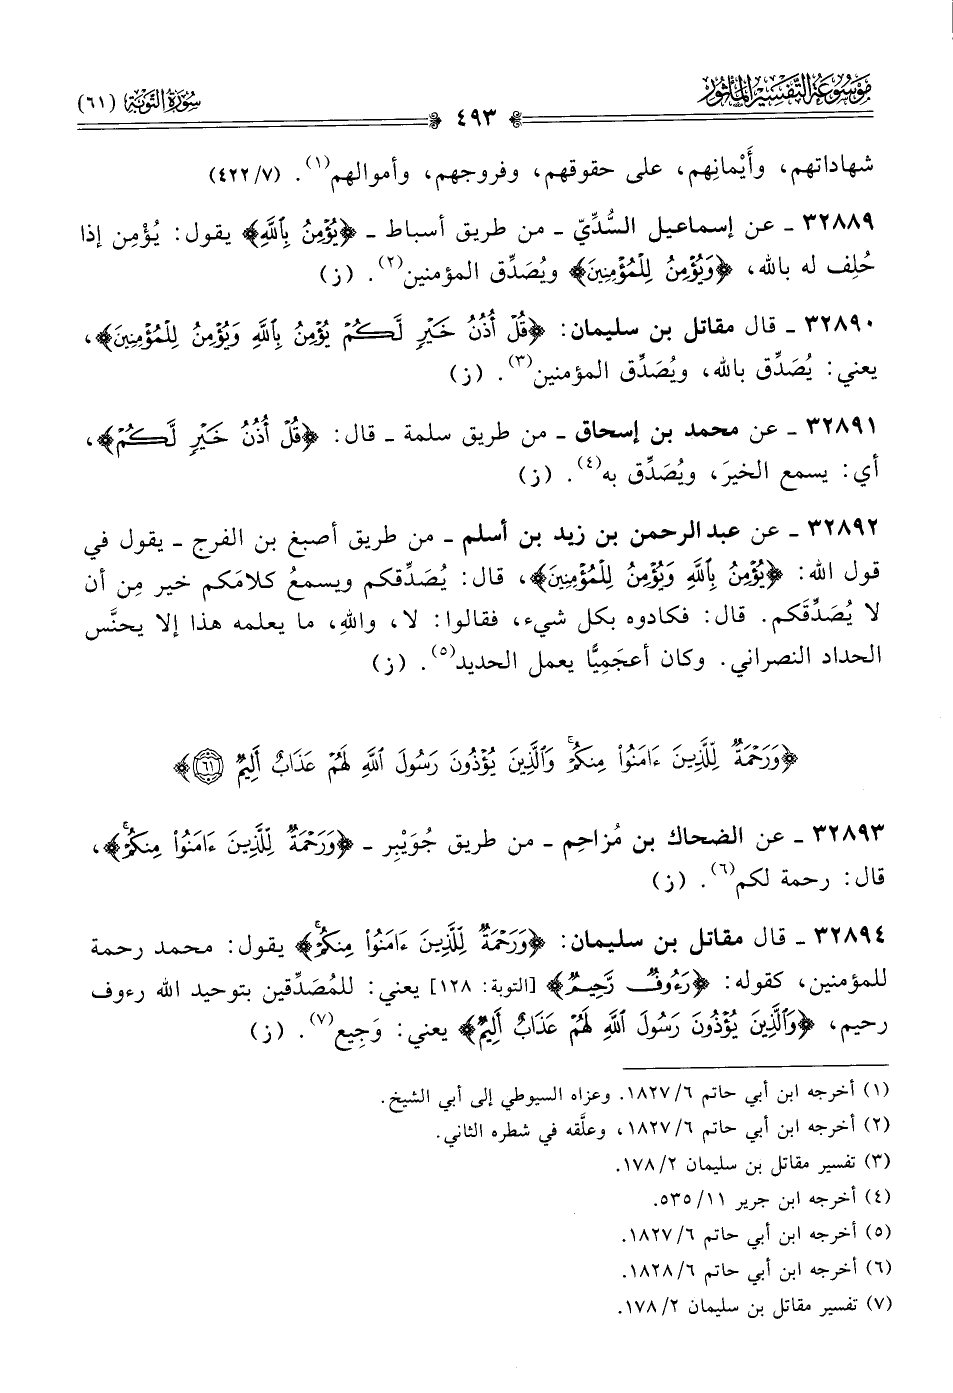 مَوْسُوعَةُ التَّفْسِيرِ المَأْثُورِ
٤٩٣
سُورَةُ التَّوْبَةِ (٦١)
شهاداتهم، وأَيْمانِهم، على حقوقهم، وفروجهم، وأموالهم(١). (٧/ ٤٢٢)
٣٢٨٨٩ ـ عن إسماعيل السُّدِّيّ ـ من طريق أسباط ـ ﴿يُؤْمِنُ بِٱللَّهِ﴾ يقول: يُؤْمِن إذا
حُلِف له بالله، ﴿وَيُؤْمِنُ لِلْمُؤْمِنِينَ﴾ ويُصَدِّق المؤمنين(٢). (ز)
٣٢٨٩٠ ـ قال مقاتل بن سليمان: ﴿قُلْ أُذُنُ خَيْرٍ لَّكُمْ يُؤْمِنُ بِٱللَّهِ وَيُؤْمِنُ لِلْمُؤْمِنِينَ﴾،
يعني: يُصَدِّق بالله، ويُصَدِّق المؤمنين(٣). (ز)
٣٢٨٩١ ـ عن محمد بن إسحاق ـ من طريق سلمة ـ قال: ﴿قُلْ أُذُنُ خَيْرٍ لَّكُمْ﴾،
أي: يسمع الخيرَ، ويُصَدِّق به(٤). (ز)
٣٢٨٩٢ ـ عن عبد الرحمن بن زيد بن أسلم ـ من طريق أصبغ بن الفرج ـ يقول في
قول الله: ﴿يُؤْمِنُ بِٱللَّهِ وَيُؤْمِنُ لِلْمُؤْمِنِينَ﴾، قال: يُصَدِّقكم ويسمعُ كلامَكم خير مِن أن
لا يُصَدِّقَكم. قال: فكادوه بكل شيء، فقالوا: لا، واللهِ، ما يعلمه هذا إلا يحنَّس
الحداد النصراني. وكان أعجَمِيًّا يعمل الحديد(٥). (ز)
﴿وَرَحْمَةٌ لِّلَّذِينَ ءَامَنُوا۟ مِنكُمْ ۚ وَٱلَّذِينَ يُؤْذُونَ رَسُولَ ٱللَّهِ لَهُمْ عَذَابٌ أَلِيمٌ ۝٦١﴾
٣٢٨٩٣ ـ عن الضحاك بن مُزاحِم ـ من طريق جُوَيْبِر ـ ﴿وَرَحْمَةٌ لِّلَّذِينَ ءَامَنُوا۟ مِنكُمْ ۚ﴾،
قال: رحمة لكم(٦). (ز)
٣٢٨٩٤ ـ قال مقاتل بن سليمان: ﴿وَرَحْمَةٌ لِّلَّذِينَ ءَامَنُوا۟ مِنكُمْ ۚ﴾ يقول: محمد رحمة
للمؤمنين، كقوله: ﴿رَءُوفٌ رَّحِيمٌ﴾ [التوبة: ١٢٨] يعني: للمُصَدِّقين بتوحيد الله رءوف
رحيم، ﴿وَٱلَّذِينَ يُؤْذُونَ رَسُولَ ٱللَّهِ لَهُمْ عَذَابٌ أَلِيمٌ﴾ يعني: وَجِيع(٧). (ز)
(١) أخرجه ابن أبي حاتم ٦/ ١٨٢٧. وعزاه السيوطي إلى أبي الشيخ.
(٢) أخرجه ابن أبي حاتم ٦/ ١٨٢٧، وعلَّقه في شطره الثاني.
(٣) تفسير مقاتل بن سليمان ٢/ ١٧٨.
(٤) أخرجه ابن جرير ١١/ ٥٣٥.
(٥) أخرجه ابن أبي حاتم ٦/ ١٨٢٧.
(٦) أخرجه ابن أبي حاتم ٦/ ١٨٢٨.
(٧) تفسير مقاتل بن سليمان ٢/ ١٧٨.